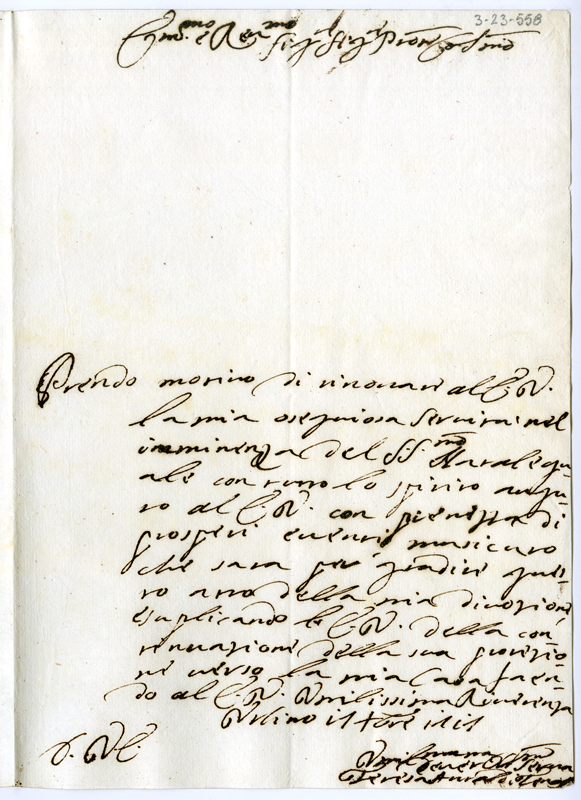 3-23-558
Em.mo e Rev.mo Sig.r Sig.r Pron Col.mo
Prendo motivo di rinovare all E. V.
la mia osequiosa servitù nel
imminenza del SS.mo Natale qu-
ale con tutto lo spirito augu-
ro al E. V. con pienezza di
prosperi eventi masicuro
che sara per gradire ques-
to atto della mia divozione
e suplicando le E. V. della con
tinuazione della sua protetio
ne verso la mia Casa facen-
do al E. V. Umilissima Riverenza
Urbino
D. V. E.
Teresa